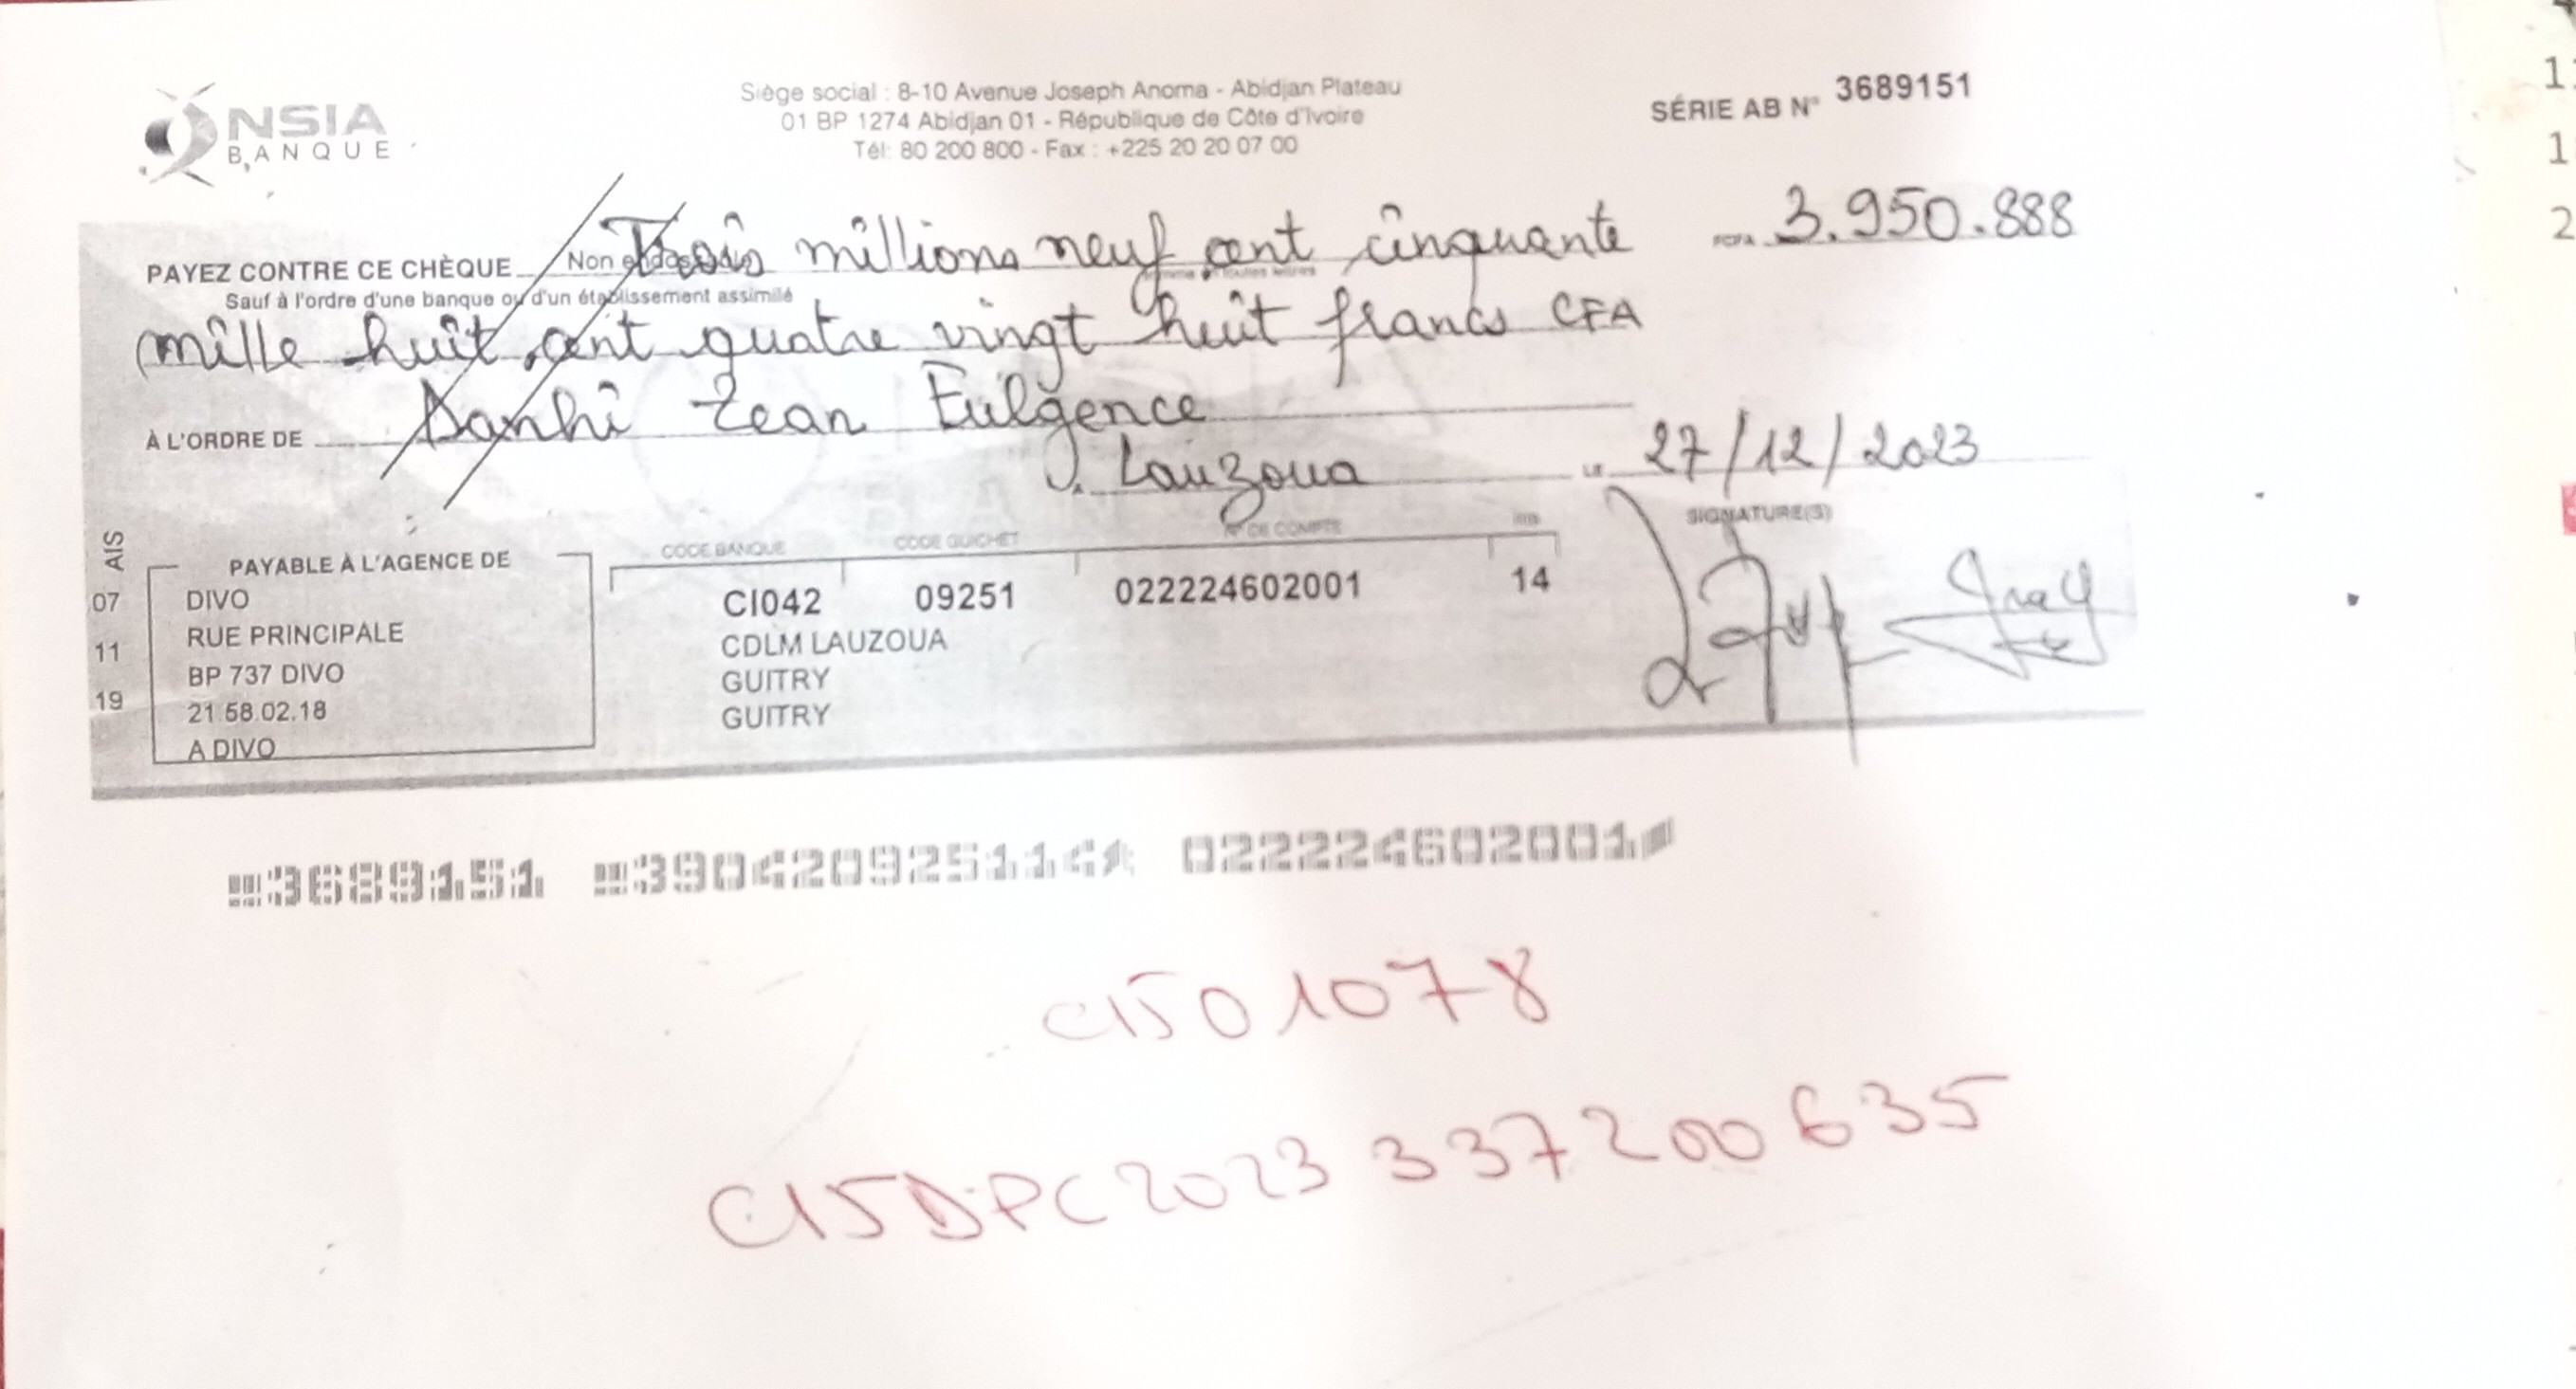 NSIA
BANQUE
Siège social : 8-10 Avenue Joseph Anoma - Abidjan Plateau
01 BP 1274 Abidjan 01 - République de Côte d'Ivoire
Tél: 80 200 800 - Fax : +225 20 20 07 00
SÉRIE AB N° 3689151
PAYEZ CONTRE CE CHÈQUE Non endossable Trois millions neuf cent cinquante FCFA 3.950.888
Sauf à l'ordre d'une banque ou d'un établissement assimilé
somme en toutes lettres
mille huit cent quatre vingt huit francs CFA
À L'ORDRE DE Danhi Zean Fulgence
Lauzoua LE 27/12/2023
SIGNATURE(S)
AIS
07
11
19
PAYABLE À L'AGENCE DE
DIVO
RUE PRINCIPALE
BP 737 DIVO
21.58.02.18
A DIVO
CODE BANQUE CODE GUICHET N° DE COMPTE RIB
CI042 09251 022224602001 14
CDLM LAUZOUA
GUITRY
GUITRY
3689151 390420925114 022224602001
CI501078
CI5DPC2023337200635